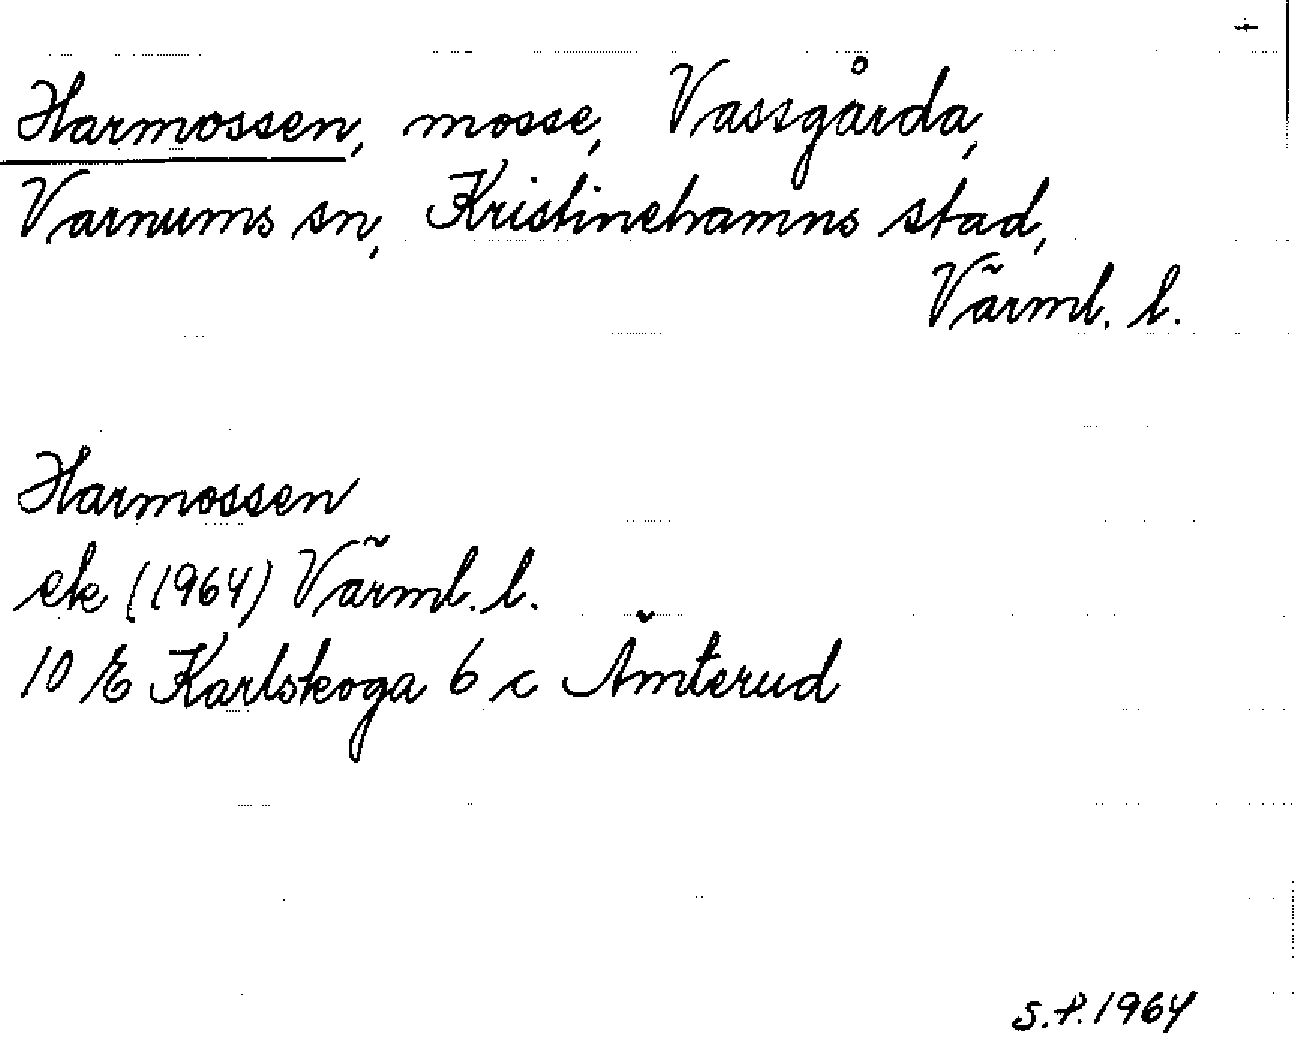 Harmossen, mosse, Vassgårda,
Varnums sn, Kristinehamns stad,
Värml. l.
Harmossen
ek (1964) Värml. l.
10 E Karlskoga 6 c Åmterud
S.P. 1964